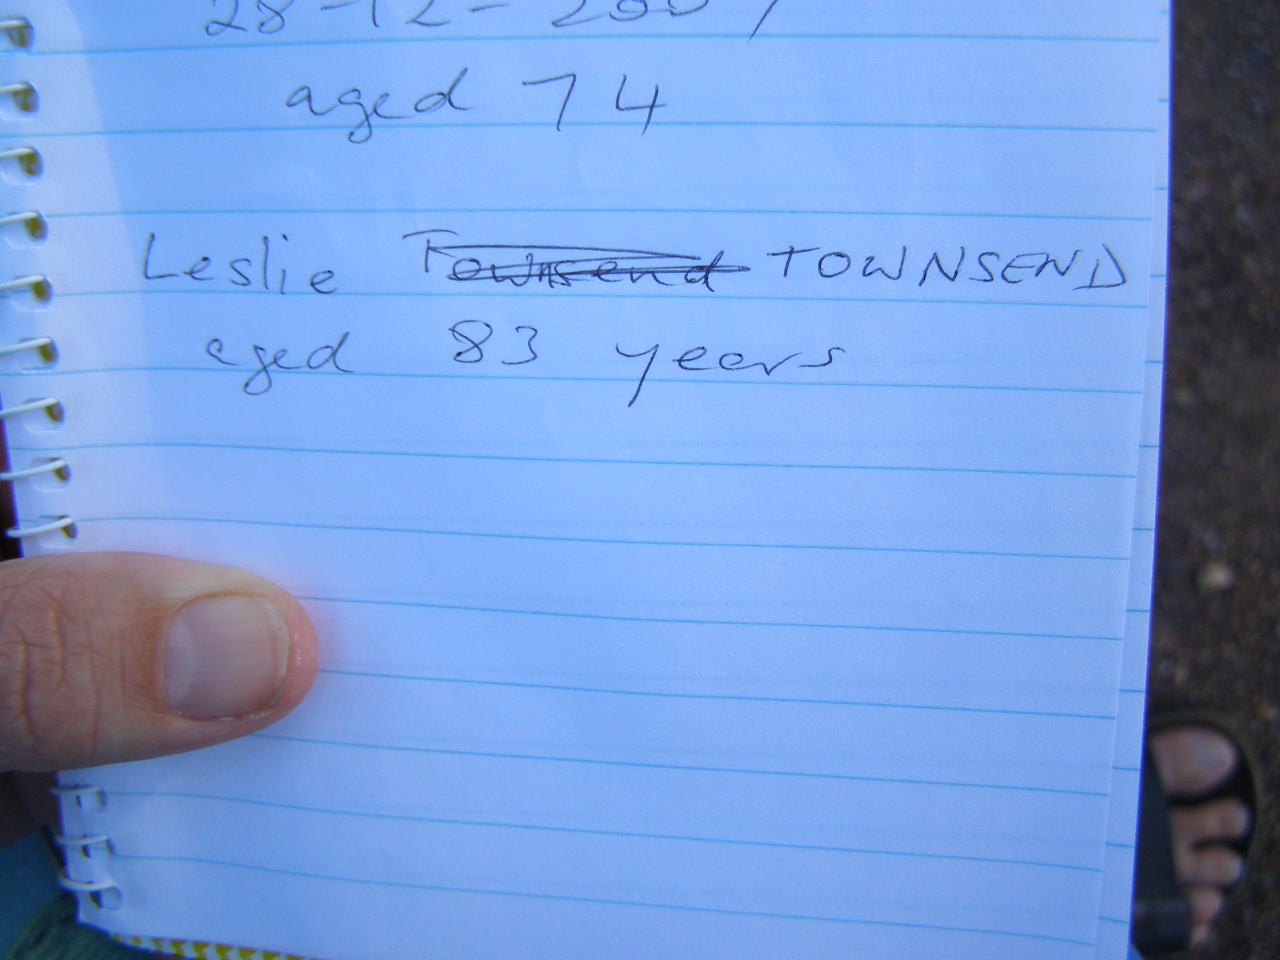 28-12-2007
aged 74
Leslie Townsend TOWNSEND
aged 83 years